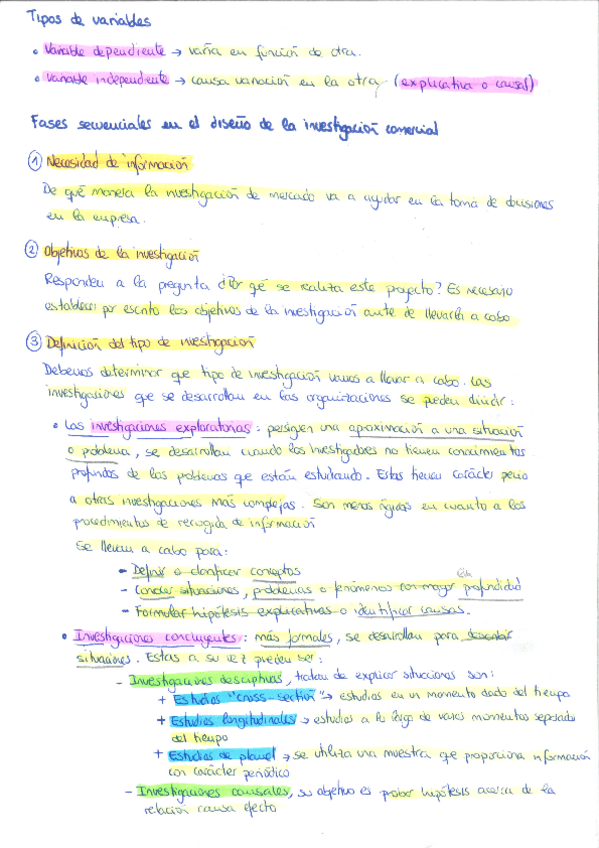 Tipos de variables
• Variable dependiente → varía en función de otra.
• Variable independiente → causa variación en la otra (explicativa o causal)
Fases secuenciales en el diseño de la investigación comercial
① Necesidad de información
De qué manera la investigación de mercado va a ayudar en la toma de decisiones
en la empresa.
② Objetivos de la investigación
Responden a la pregunta ¿Por qé se realiza este proyecto? Es necesario
establecer por escrito los objetivos de la investigación antes de llevarla a cabo
③ Definición del tipo de investigación
Debemos determinar que tipo de investigación vamos a llevar a cabo. Las
investigaciones que se desarrollan en las organizaciones se pueden dividir:
• Las investigaciones exploratorias: persiguen una aproximación a una situación
o problema, se desarrollan cuando los investigadores no tienen conocimientos
profundos de los problemas que están estudiando. Estas tienen carácter previo
a otras investigaciones más complejas. Son menos rígidas en cuanto a los
procedimientos de recogida de información
Se llevan a cabo para:
- Definir o clarificar conceptos
- Conocer situaciones, problemas o fenómenos con mayor profundidad
- Formular hipótesis explicativas o identificar causas.
• Investigaciones concluyentes: más formales, se desarrollan para describir
situaciones. Estas a su vez pueden ser:
- Investigaciones descriptivas, tratan de explicar situaciones son:
+ Estudios "cross-section" → estudios en un momento dado del tiempo
+ Estudios longitudinales → estudios a lo largo de varios momentos separados
del tiempo
+ Estudios de panel → se utiliza una muestra que proporciona información
con carácter periódico
- Investigaciones causales, su objetivo es probar hipótesis acerca de la
relación causa efecto